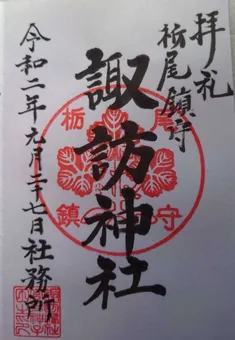 拝礼
栃尾鎮守
諏訪神社
栃尾
鎮守
令和二年九月二十七日 社務所